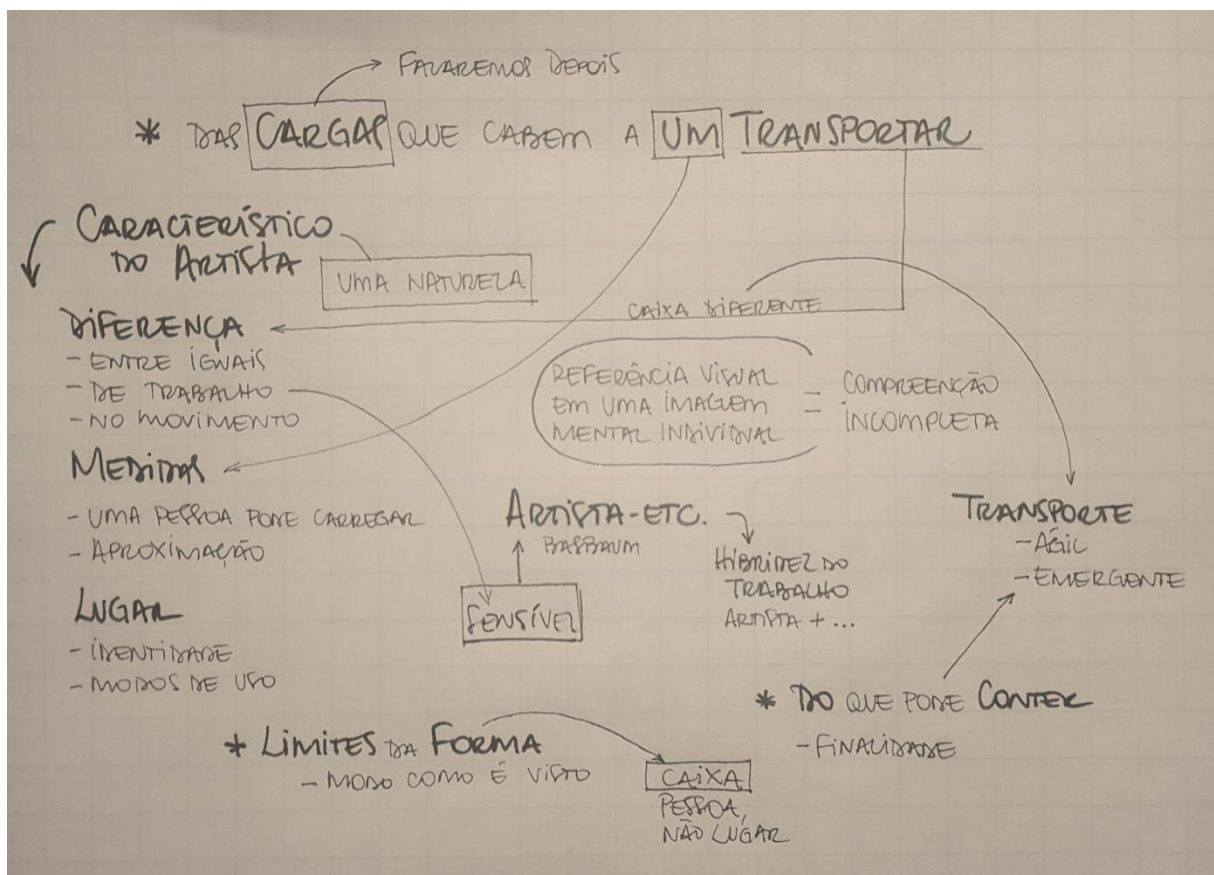 → FALAREMOS DEPOIS
* DAS CARGAS QUE CABEM A UM TRANSPORTAR
CARACTERÍSTICO
DO ARTISTA
UMA NATUREZA
CAIXA DIFERENTE
DIFERENÇA
- ENTRE IGUAIS
- DE TRABALHO
- NO MOVIMENTO
REFERÊNCIA VISUAL
EM UMA IMAGEM
MENTAL INDIVIDUAL
= COMPREENÇÃO
INCOMPLETA
MEDIDAS
- UMA PESSOA PODE CARREGAR
- APROXIMAÇÃO
ARTISTA-ETC.
BASBAUM
HIBRIDEZ DO
TRABALHO
ARTISTA + ...
TRANSPORTE
- ÁGIL
- EMERGENTE
LUGAR
- IDENTIDADE
- MODOS DE USO
SENSÍVEL
* DO QUE PODE CONTER
- FINALIDADE
* LIMITES DA FORMA
- MODO COMO É VISTO
CAIXA
PESSOA,
NÃO LUGAR